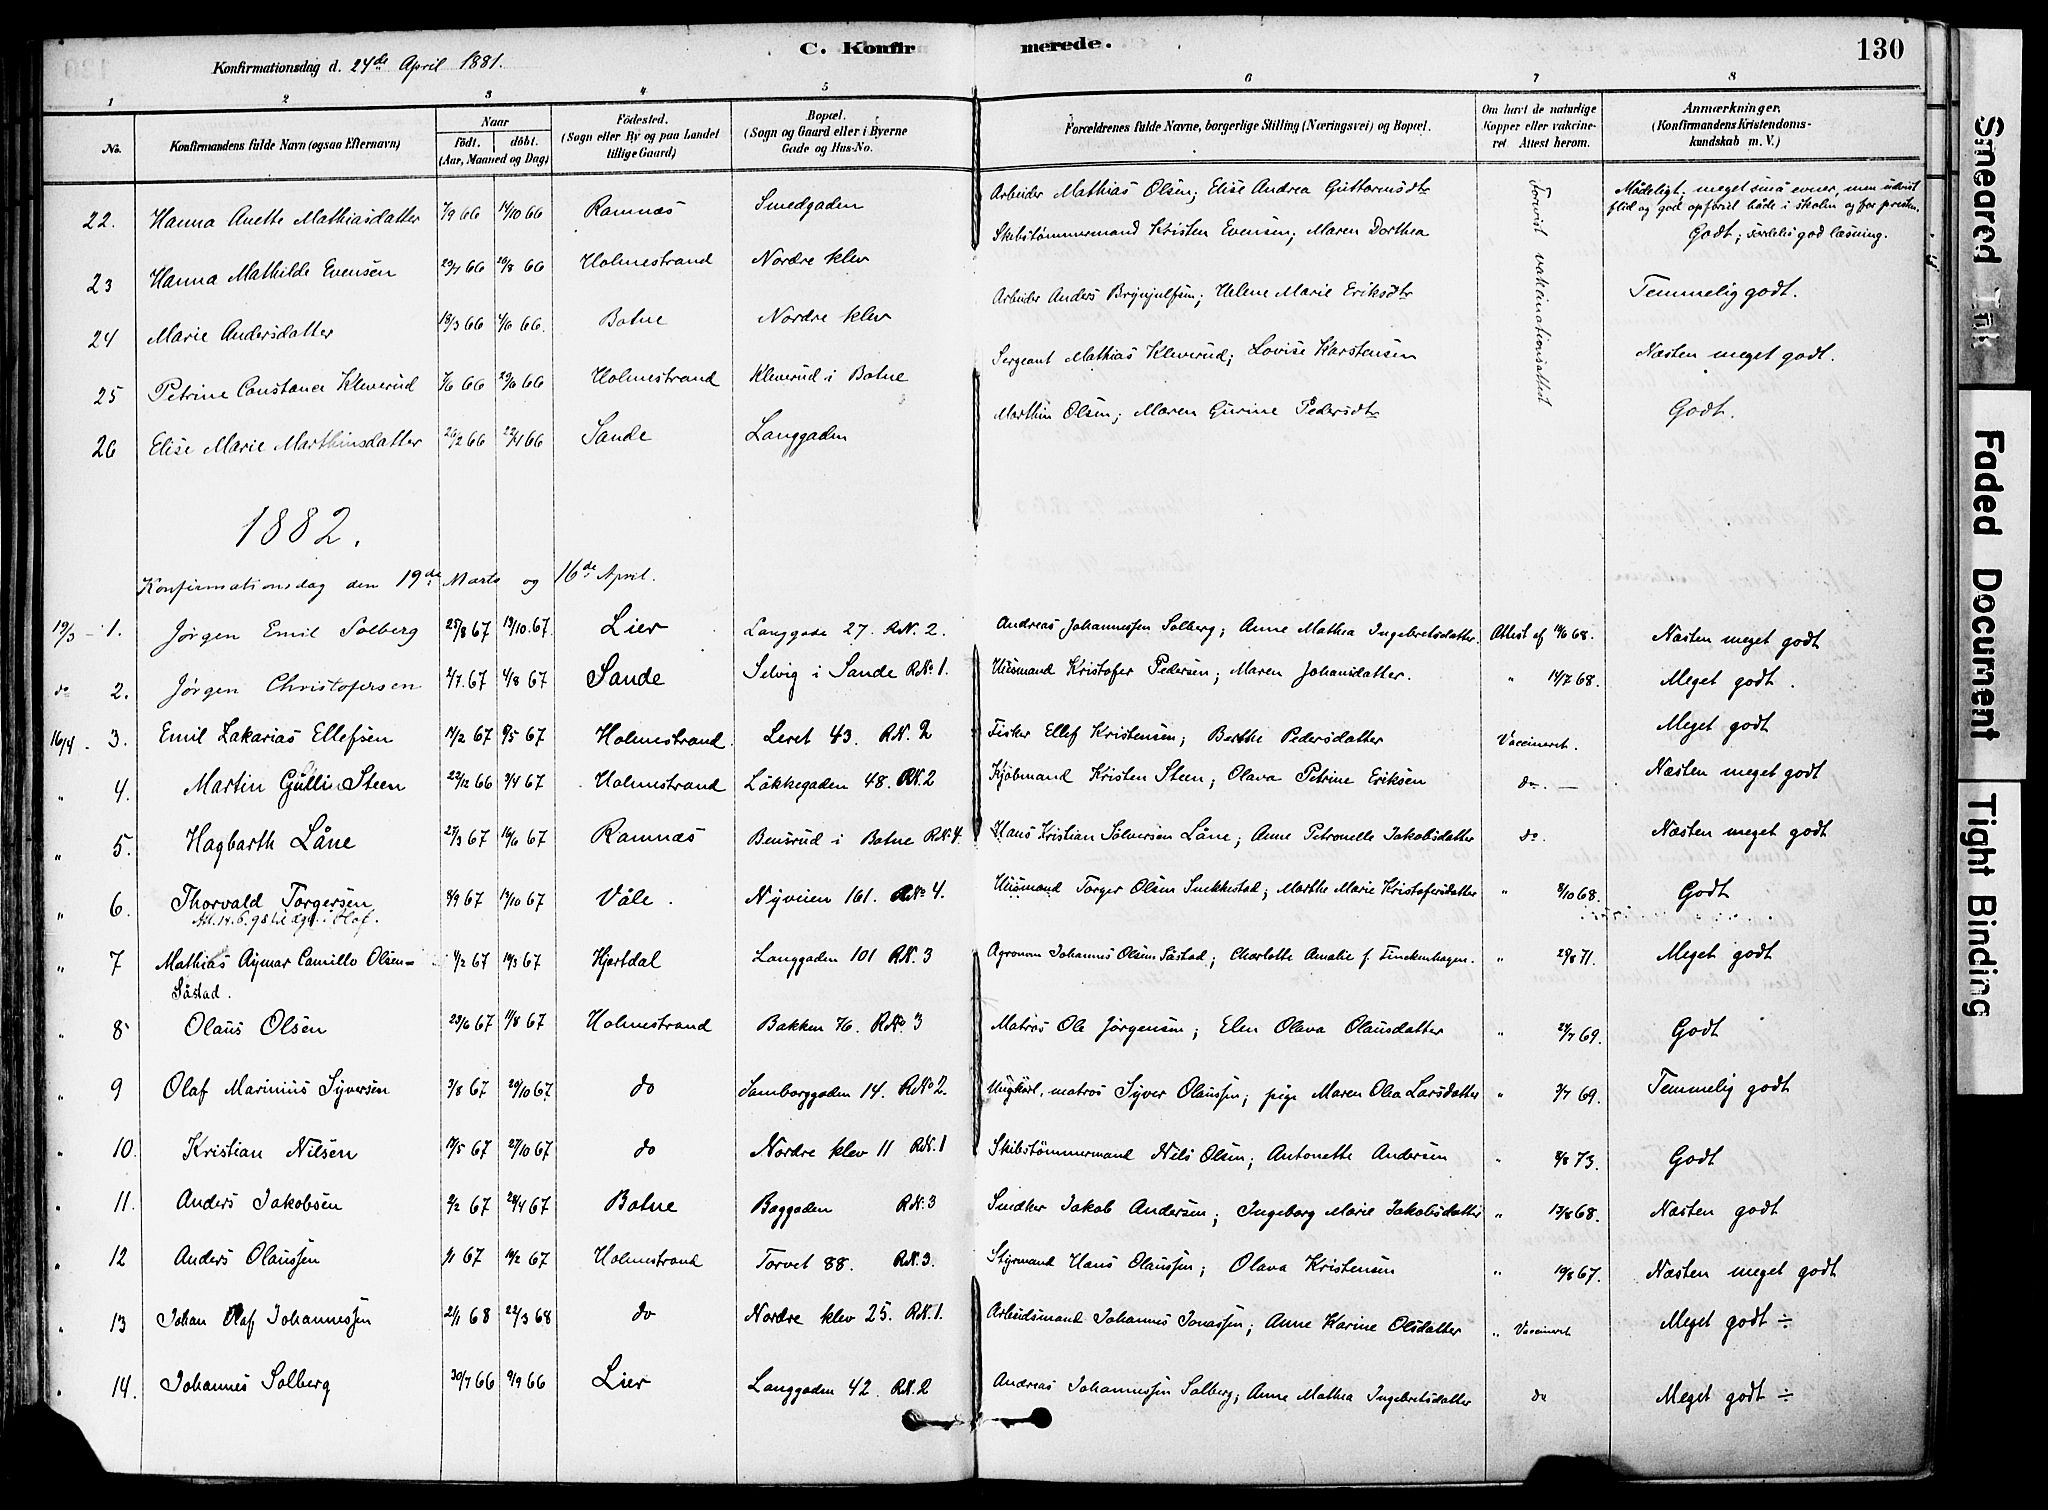 C. Konfirmerede.
130
Konfirmationsdag d. 24de April 1881.
1 2 3 4 5 6 7 8
No. Konfirmandens fulde Navn (ogsaa Efternavn) Naar födt. döbt. (Aar, Maaned og Dag) Födested. (Sogn eller By og paa Landet tillige Gaard) Bopæl. (Sogn og Gaard eller i Byerne Gade og Hus-No. Forældrenes fulde Navne, borgerlige Stilling (Næringsvei) og Bopæl. Om havt de naturlige Kopper eller vakcineret. Attest herom. Anmærkninger. (Konfirmandens Kristendomskundskab m. V.)
22. Hanna Anette Mathiasdatter 1/9 66 14/10 66 Ramnæs Smedgaden Arbeider Mathias Olsen; Elise Andrea Guttormsdtr Forevist vakcinationsattest Mådeligt; meget små evner, men udvist flid og god opførsel både i skolen og for presten.
23 Hanna Mathilde Evensen 29/7 66 26/8 66 Holmestrand Nordre klev Skibstømmermand Kristen Evensen; Maren Dorthea Godt; særdeles god læsning.
24 Marie Andersdatter 18/3 66 4/6 66. Botne Nordre klev Arbeider Anders Brynjulfsen; Helene Marie Eriksdtr Temmelig godt.
25 Petrine Constance Kleverud 1/6 66 29/6 66 Holmestrand Kleverud i Botne Sergeant Mathias Kleverud; Lovise Karstensen Næsten meget godt.
26 Elise Marie Marthinsdatter 26/2 66 22/4 66 Sande Langgaden Marthin Olsen; Maren Gurine Pedersdtr Godt.
1882.
Konfirmationsdag den 19de Marts og 16de April.
19/3 - 1. Jørgen Emil Solberg 25/8 67 13/10. 67. Lier Langgade 27. RN. 2. Andreas Johannessen Solberg; Anne Mathea Ingebretsdatter Attest af 14/6 68. Næsten meget godt
do 2. Jørgen Christofersen 2/7. 67 4/8 67 Sande Selvig i Sande RNo. 1. Husmand Kristofer Pedersen; Maren Johansdatter. " 14/7 68. Meget godt.
16/4 - 3. Emil Zakarias Ellefsen 14/2 67 9/5 67 Holmestrand. Leret 43. RN. 2 Fisker Ellef Kristensen; Berthe Pedersdatter Vaccineret. Meget godt
" 4. Martin Gulli Steen 22/12 66 3/4 67 Holmestrand Løkkegaden 48. RN. 2 Kjøbmand Kristen Steen; Olava Petrine Eriksen do. — Næsten meget godt
" 5. Hagbarth Låne 27/3 67 16/6 67 Ramnæs Bensrud i Botne RN. 4. Hans Kristian Solversen Låne; Anne Petronelle Jakobsdatter do. Næsten meget godt
" 6. Thorvald Torgersen 8/9 67 13/10 67 Våle. Nyveien 161. RNo 4. Husmand Torger Olsen Snekkestad; Marthe Marie Kristofersdatter " 8/10 68. Godt
Att. 14.6.98
" 7 Mathias Aymar Camillo Olsen- 1/2 67 14/3 67 Hjertdal Langgaden 101 RN. 3 Agronom Johannes Olsen Såstad; Charlotte Amalie f. Finckenhagen. " 29/8 71. Meget godt
Såstad.
" 8 Olaus Olsen 23/6 67 11/8 67 Holmestrand Bakken 76. RNo. 3 Matros Ole Jørgensen; Elen Olava Olausdatter " 24/7 69. Godt
" 9 Olaf Marinius Syversen 3/8 67 20/10 67. do Samborggaden 14. RNo 2. Ungkarl, matros Syver Olaussen; pige Maren Olea Larsdatter " 3/7 69. Temmelig godt
" 10. Kristian Nilsen 19/5 67 27/10 67 do Nordre klev 11 RN. 1 Skibstømmermand Nils Olsen; Antonette Andersen " 8/8 73. Godt
" 11. Anders Jakobsen 2/2 67 28/4 67 Botne Baggaden RN. 3 Snedker Jakob Andersen; Ingeborg Marie Jakobsdatter " 13/8 68. Næsten godt
" 12 Anders Olaussen 1/1 67 14/2 67 Holmestrand Torvet 88. RN. 3. Styrmand Hans Olaussen; Olava Kristensen " 19/8 67. Næsten meget godt
" 13 Johan Olaf Johannessen 21/1 68 22/3 68 do Nordre klev 25. RN. 1. Arbeidsmand Johannes Jonassen; Anne Karine Olsdatter " Vaccineret Meget godt ÷
" 14. Johannes Solberg 30/7 66 9/9 66 Lier Langgaden 42. RN. 2 Andreas Johannessen Solberg; Anne Mathea Ingebretsdatter do Meget godt ÷
Smeared Ink
Faded Document
Tight Binding